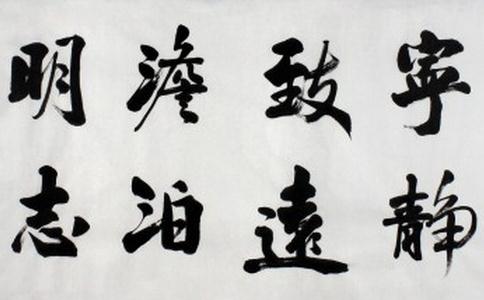 寧靜
致遠
澹泊
明志